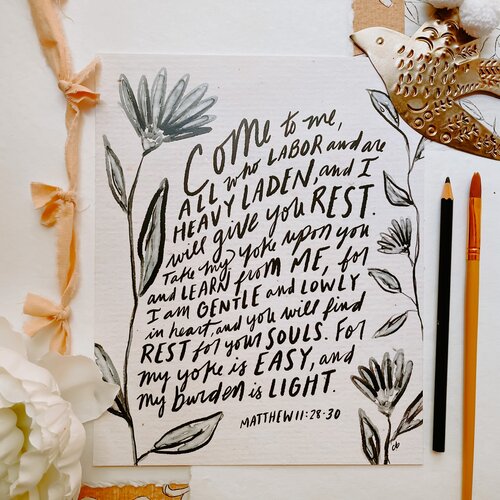 COME to me,
ALL who LABOR and are
HEAVY LADEN, and I
will give you REST.
Take my yoke upon you
and LEARN from ME, for
I am GENTLE and LOWLY
in heart, and you will find
REST for your SOULS. For
my yoke is EASY, and
my burden is LIGHT.
MATTHEW 11:28-30
cb